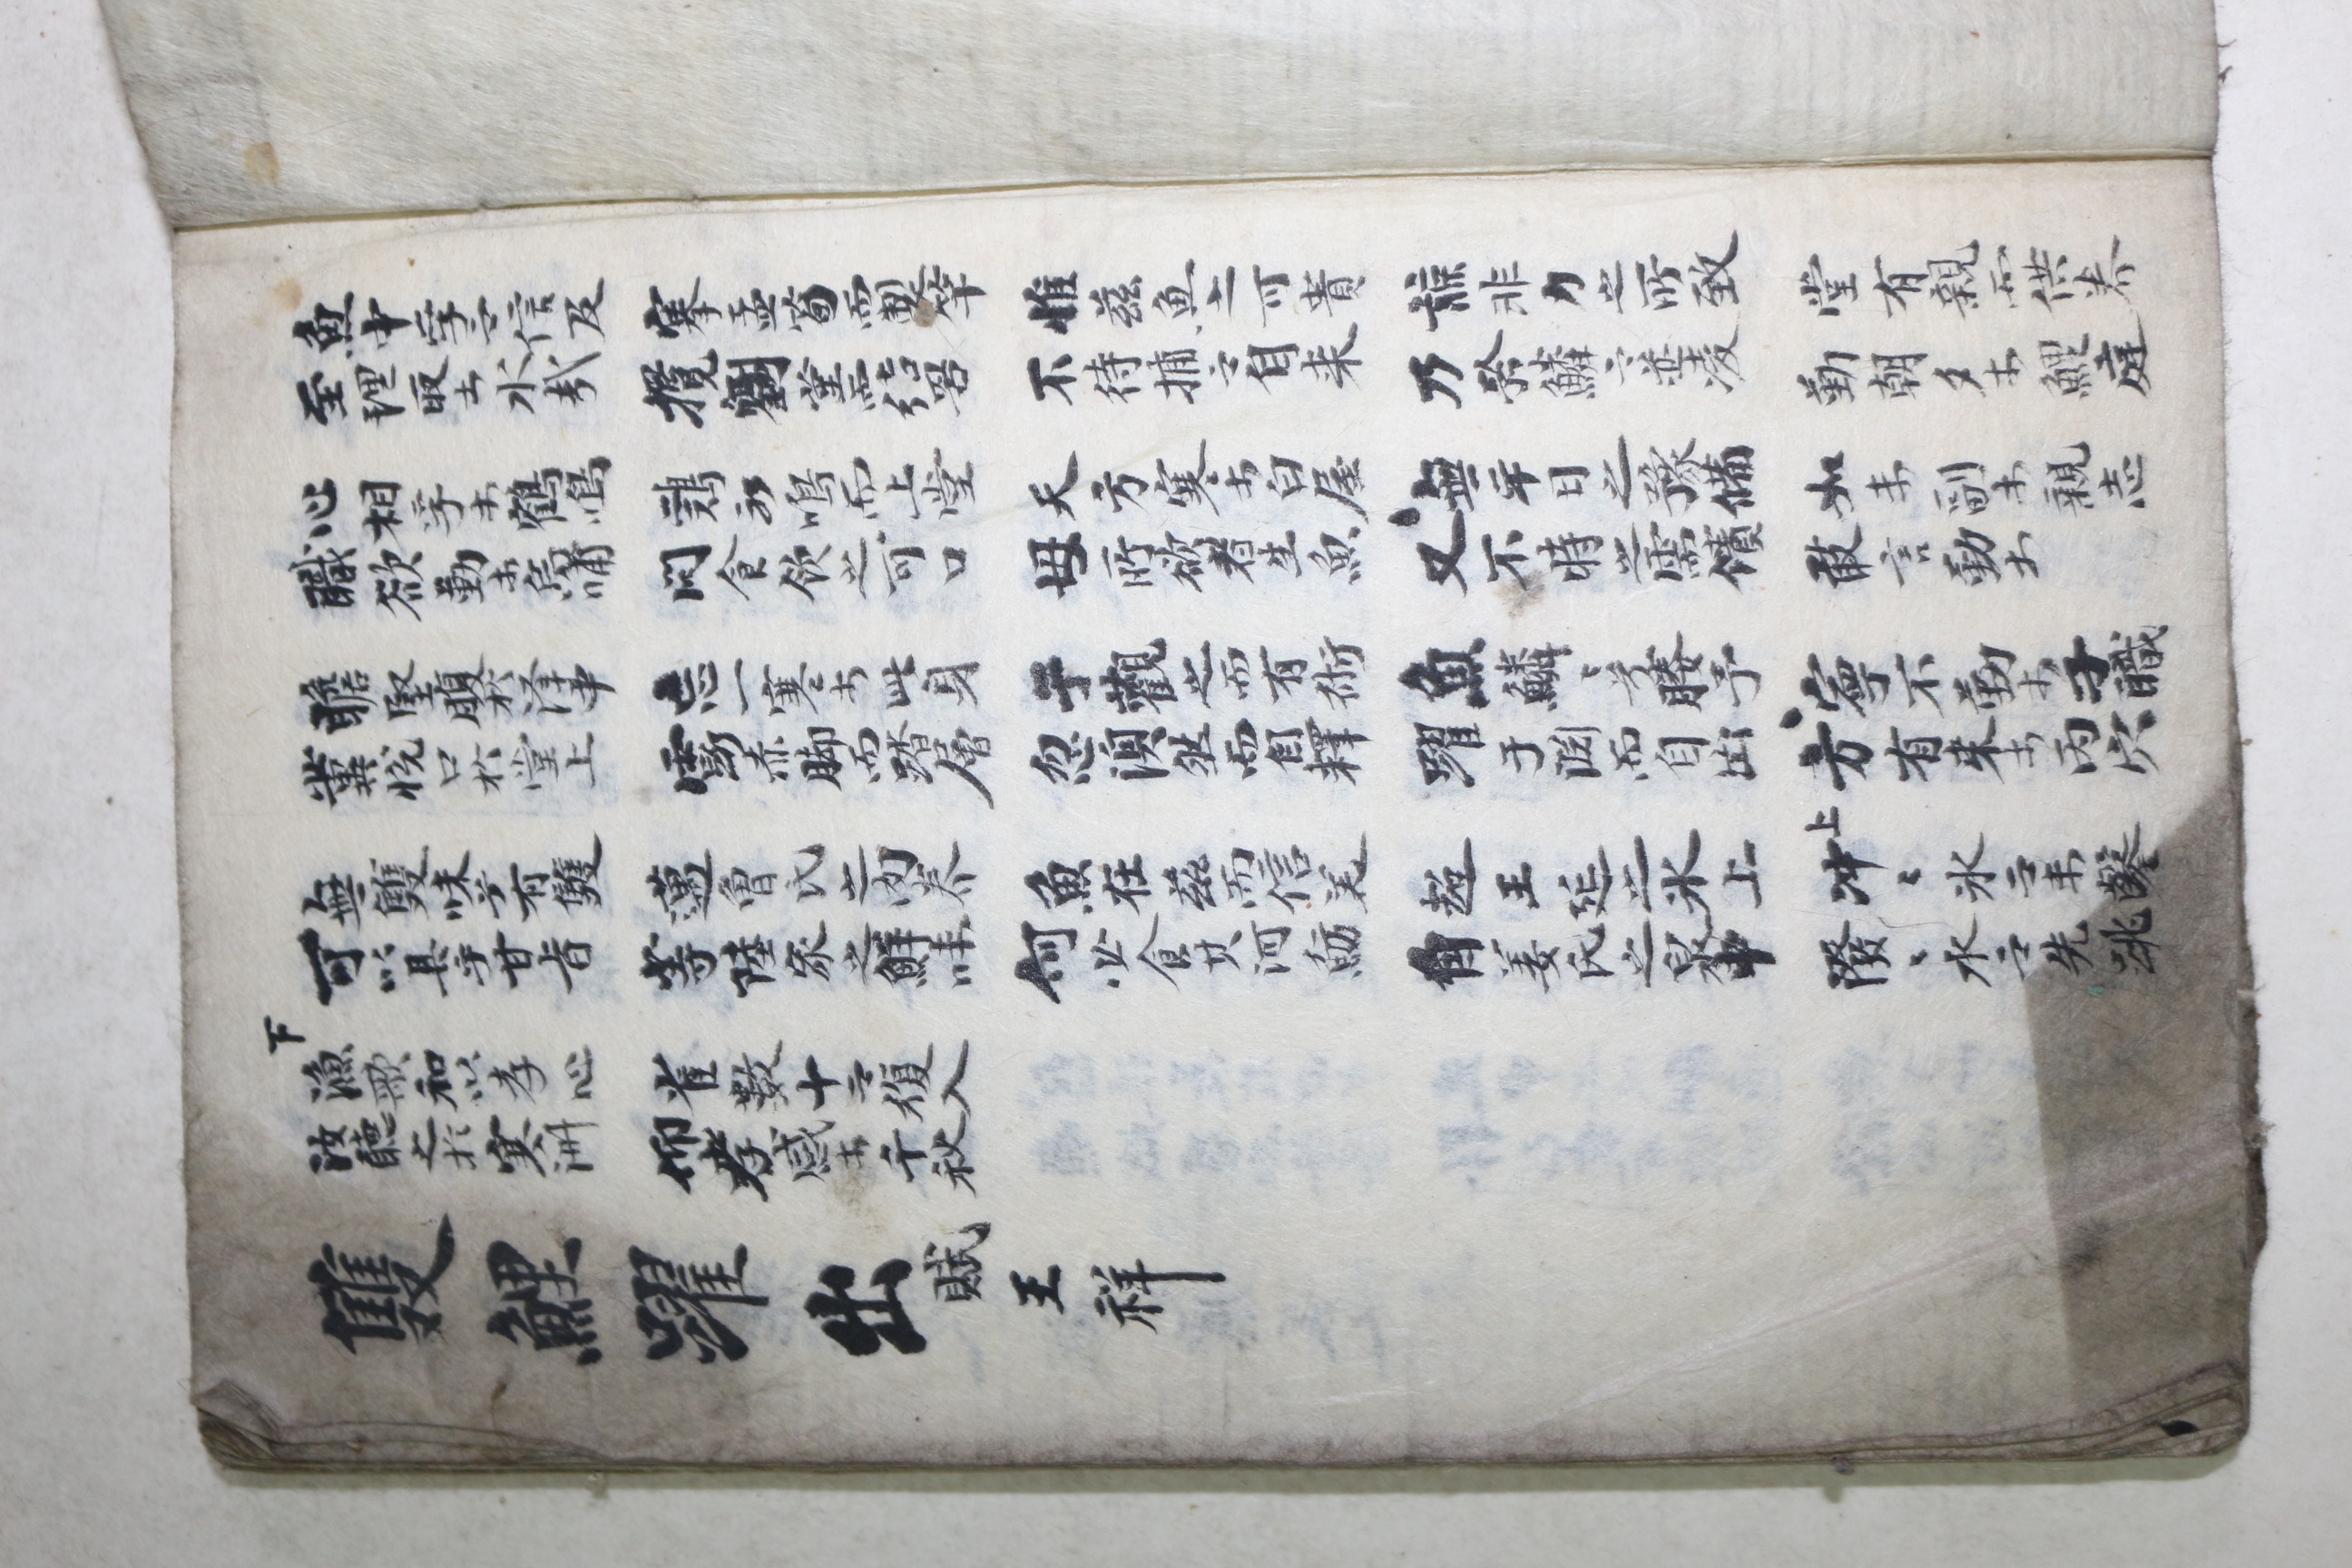 魚中孚而信及 搴孟筍而製竿 惟玆魚之可貴 諒非力之所致 堂有親而供养
至理取於水哉 攬劉菫而結罟 不待捕而自来 乃跨鱗而並凌 勤朝夕於鯉庭
心相孚於鶴鳴 鷄初鳴而上堂 天方寒於白屋 無平日之豫備 如未副於親志
職欲勤於烏哺 問食飲之可口 母所欲者生魚 又不時之需饋 敢言勤於
瞻堅腹於泽中 忘一寒於此身 予觀之而有術 魚鱗〻兮媵予 寧不勤於子職
冀悅口於堂上 露赤脚而踏層 忽渙然而自釋 躍于淵而自出 方有来於丙穴
上
無雙味兮有雙 邁曾氏之內养 魚在玆而信美 超王延之氷上 冲〻氷而未鑿
可以具乎甘旨 等陸家之鮮味 何必食其河魴 自姜氏之泉中 潑〻水而先跳
下
漁歌和以孝心 雀數十而復入
汝聽之於寒洲 仰孝感於千秋
雙鯉躍出 賦 王祥